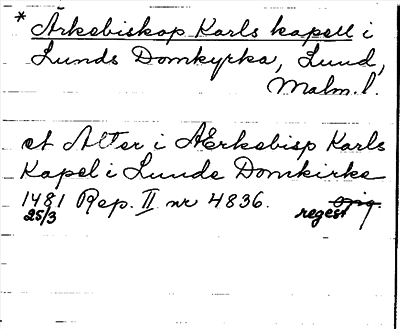 * Ärkebiskop Karls kapell i
Lunds Domkyrka, Lund,
Malm. l.
et Alter i AErkebisp Karls
Kapel i Lunde Domkirke
1481 Rep. II nr 4836. Orig.
25/3 regest